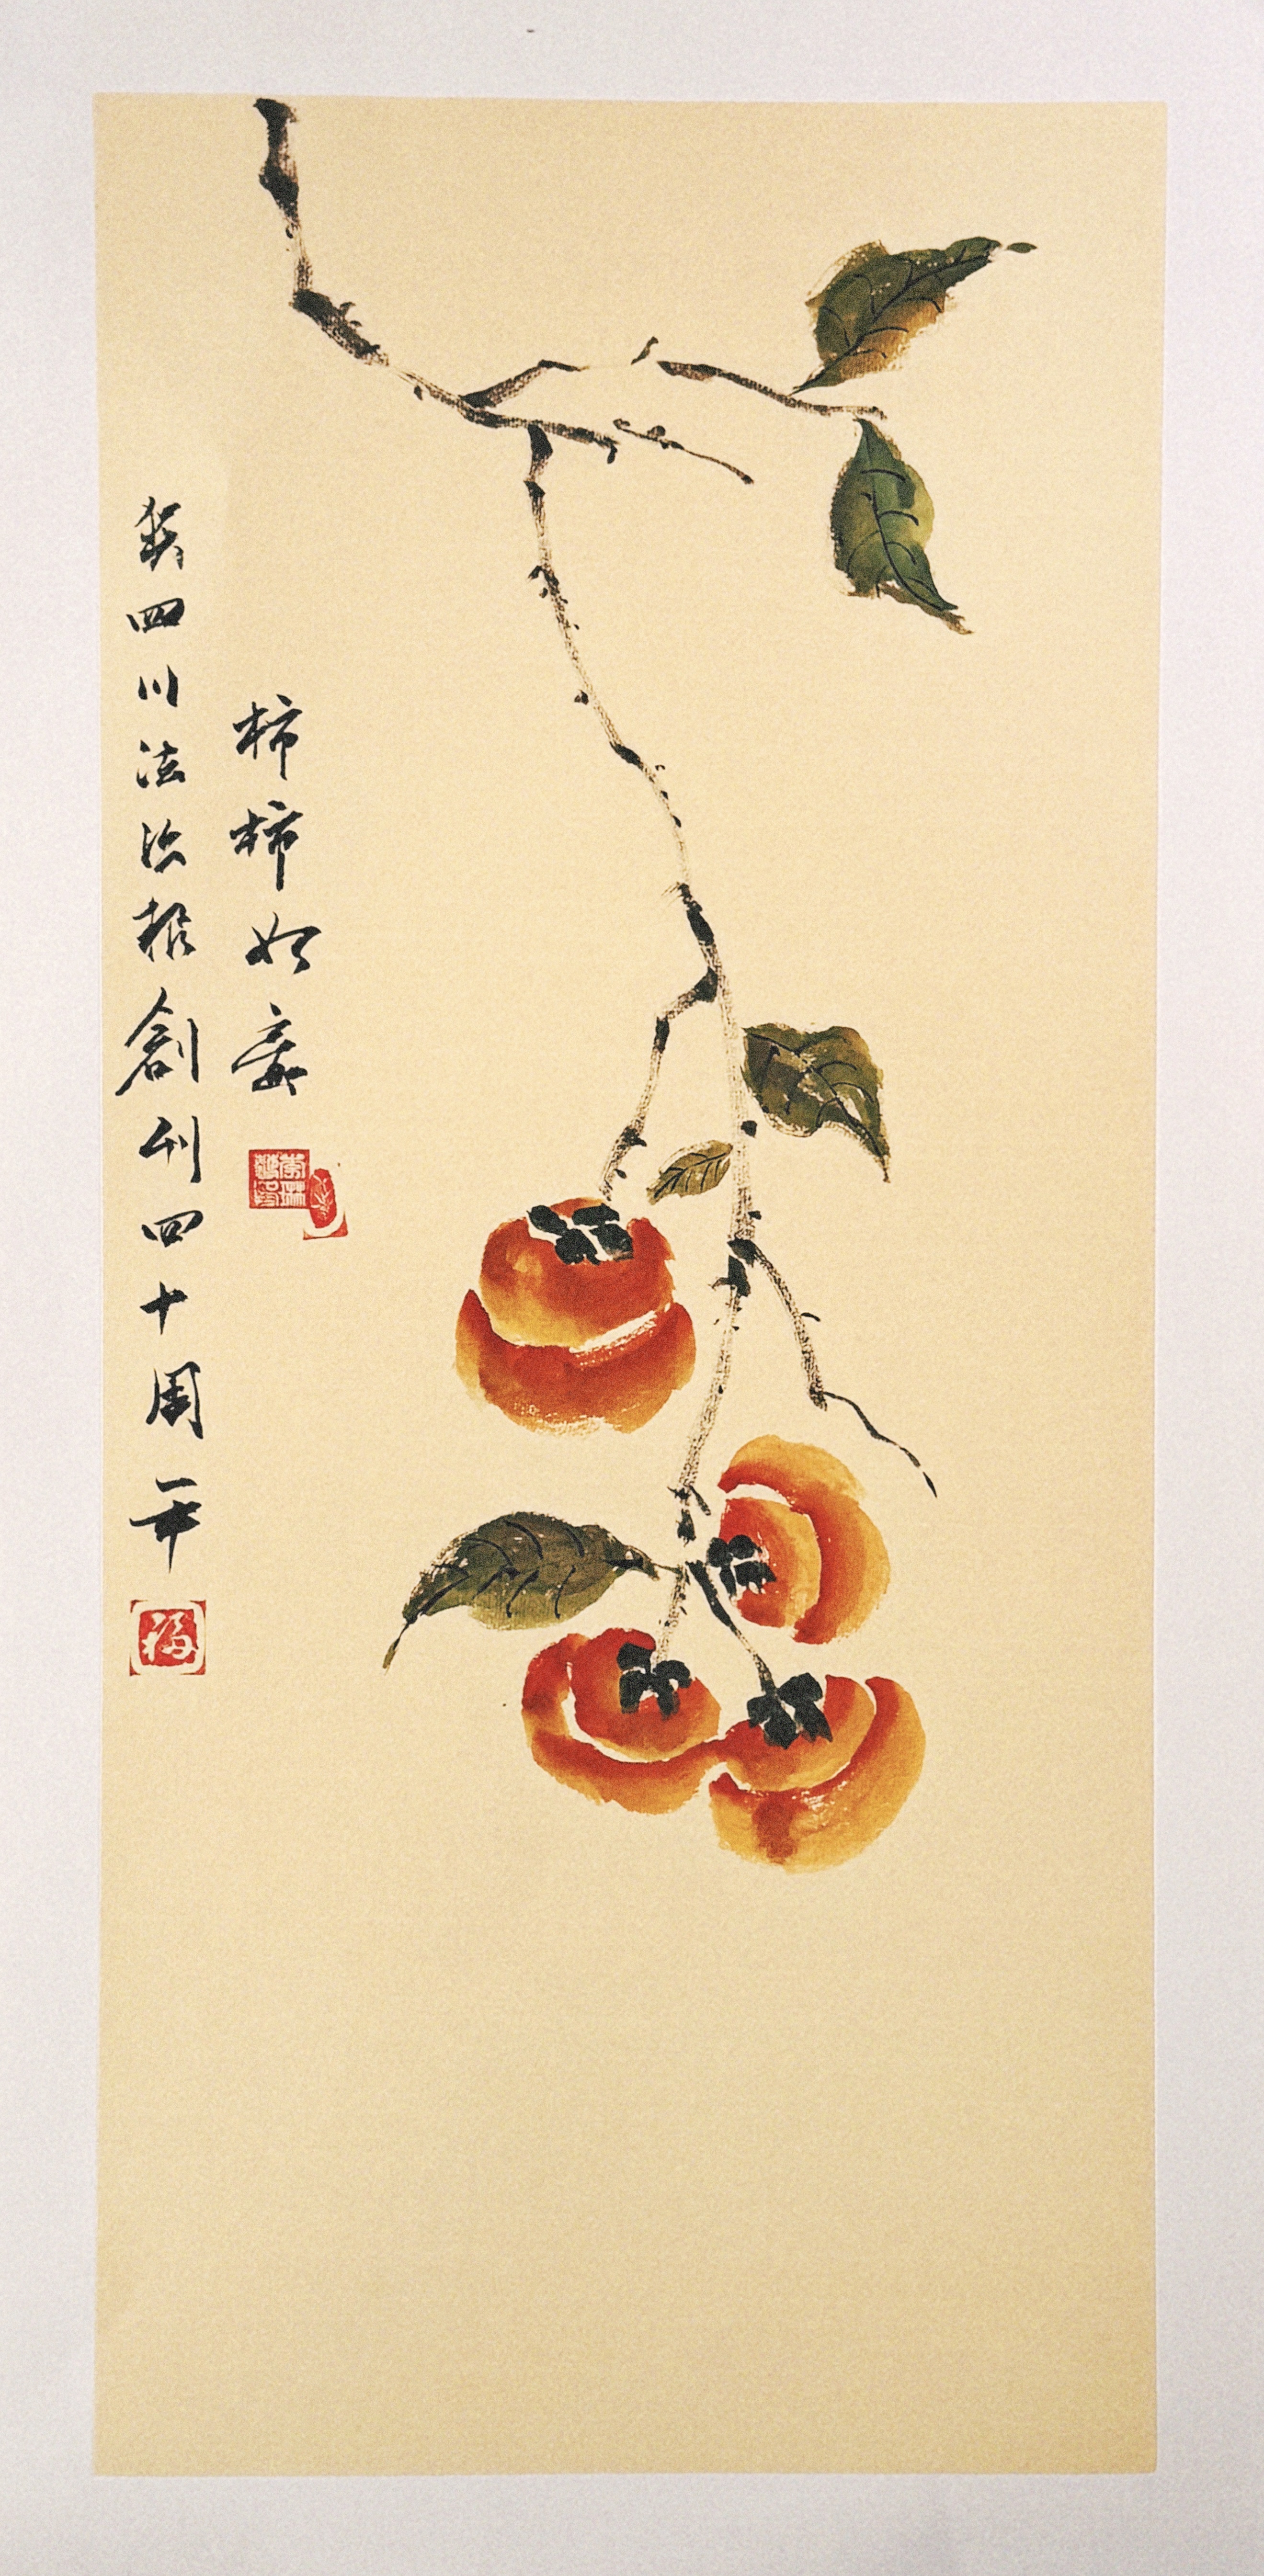 柿柿如意
贺四川法治报創刊四十周年
福